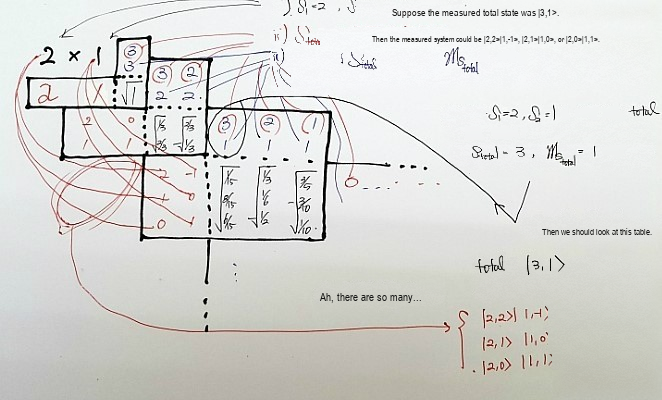 i) S₁=2, S
Suppose the measured total state was |3,1>.
ii) S
Then the measured system could be |2,2>|1,-1>, |2,1>|1,0>, or |2,0>|1,1>.
iii)
S total
Ms total
2 × 1
3
3
3 2
2 1 √1
2 2
S₁=2, S₂=1 total
2 0 √1/3 √2/3 3 2 1
1 1 √2/3 -√1/3 1 1 1
S total = 3, Ms total = 1
2 -1 √1/15 √1/3 √3/5
1 0 √8/15 √1/6 -√3/10
0 1 √6/15 -√1/2 √1/10
0
Then we should look at this table.
total |3,1>
Ah, there are so many...
|2,2>|1,-1>
|2,1>|1,0
|2,0>|1,1>